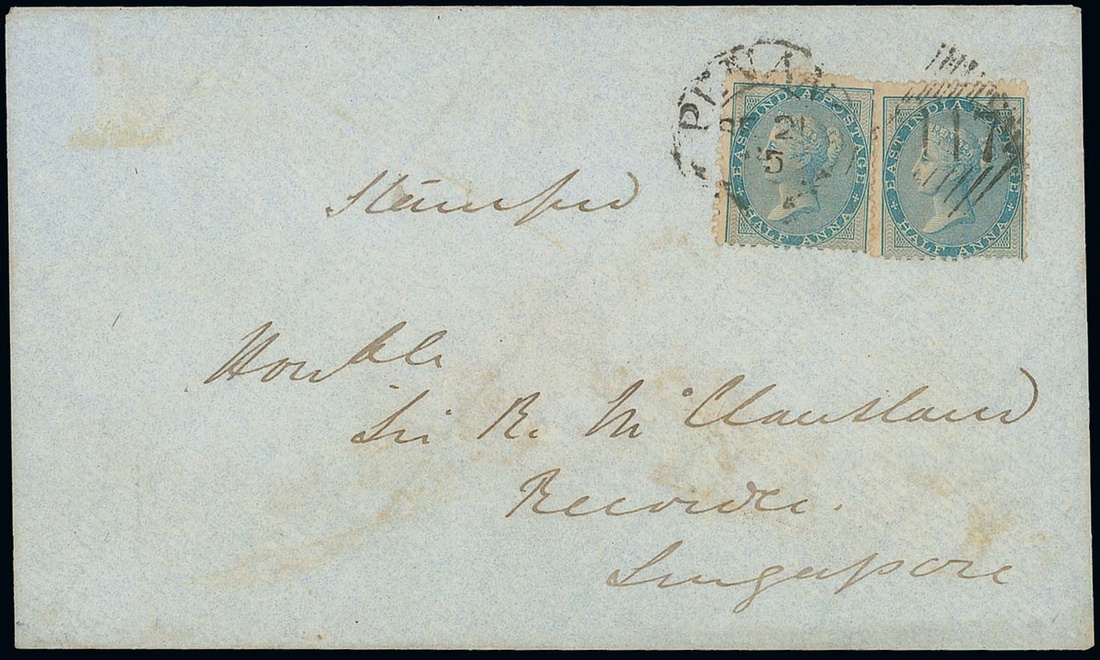 PENAN
21
5
EAST INDIA POSTAGE
HALF ANNA
EAST INDIA POSTAGE
HALF ANNA
117
Stamped
Honble
Sir R. McCausland
Recorder
Singapore